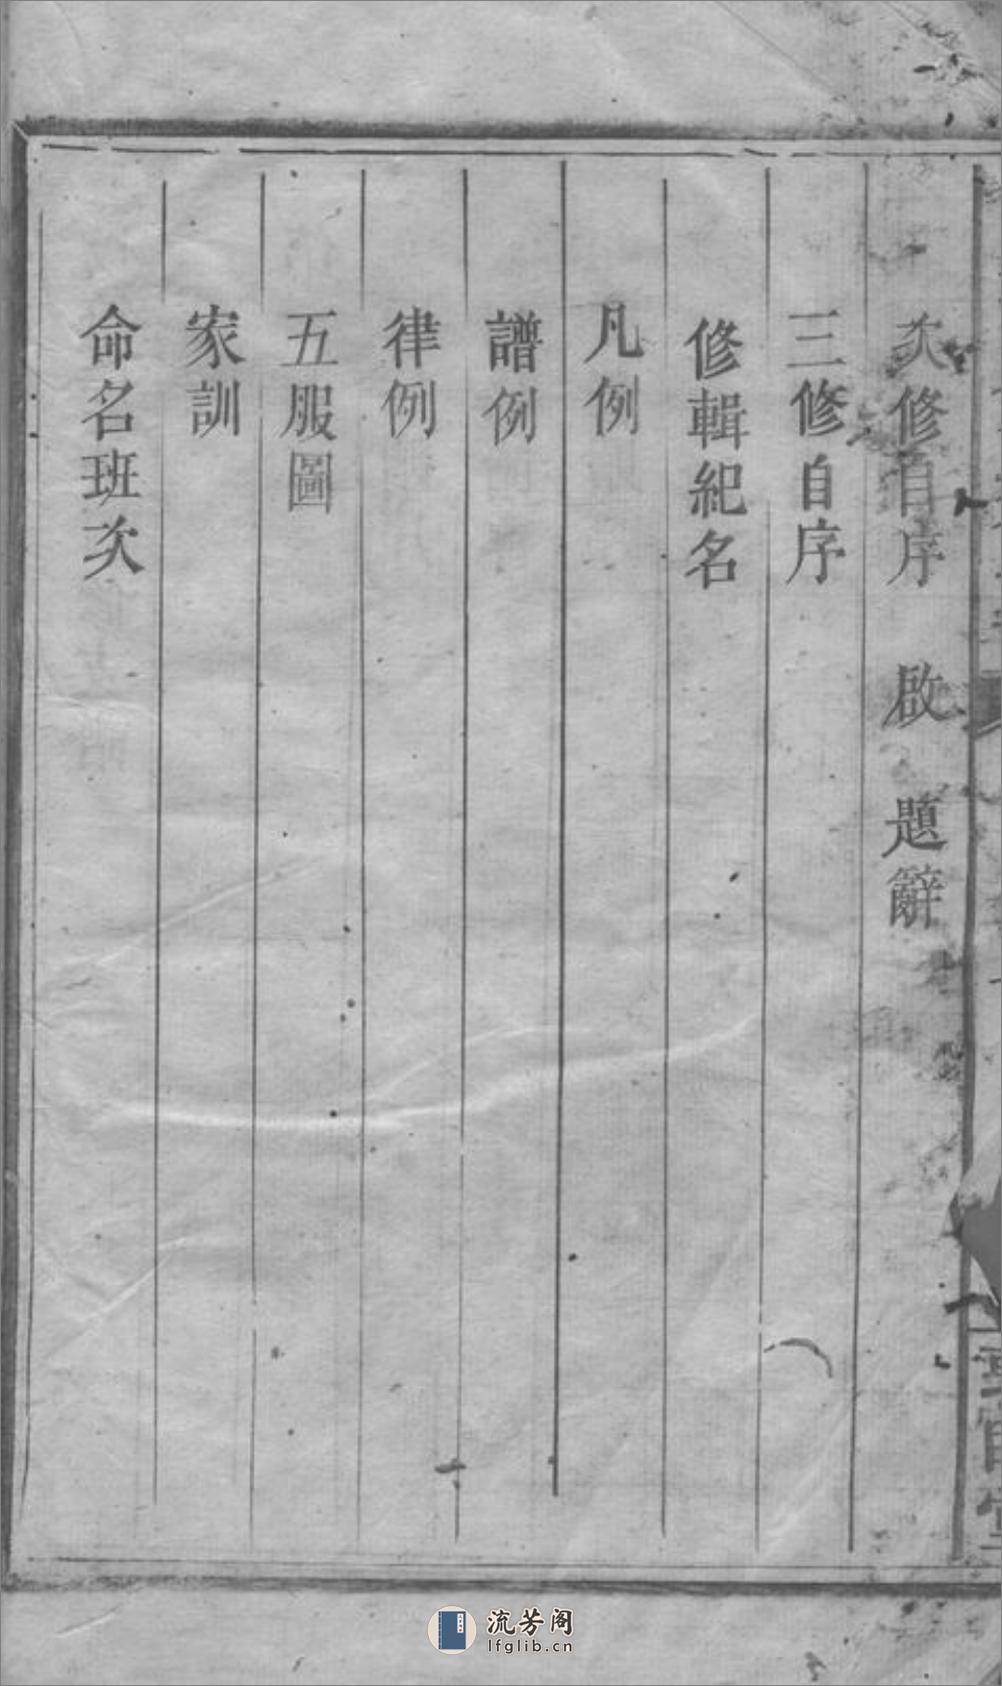 次修自序　啟　題辭
三修自序
修輯紀名
凡例
譜例
律例
五服圖
家訓
命名班次
流芳阁
lfglib.cn